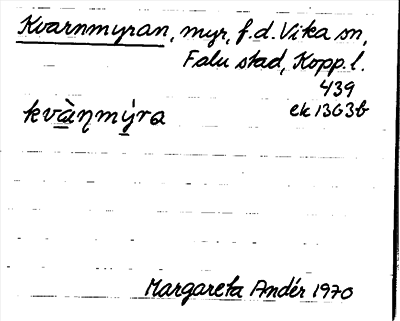 Kvarnmyran, myr, f.d. Vika sn,
Falu stad, Kopp. l.
439
ek 13G3b
kvàɳmýra
Margareta Andér 1970